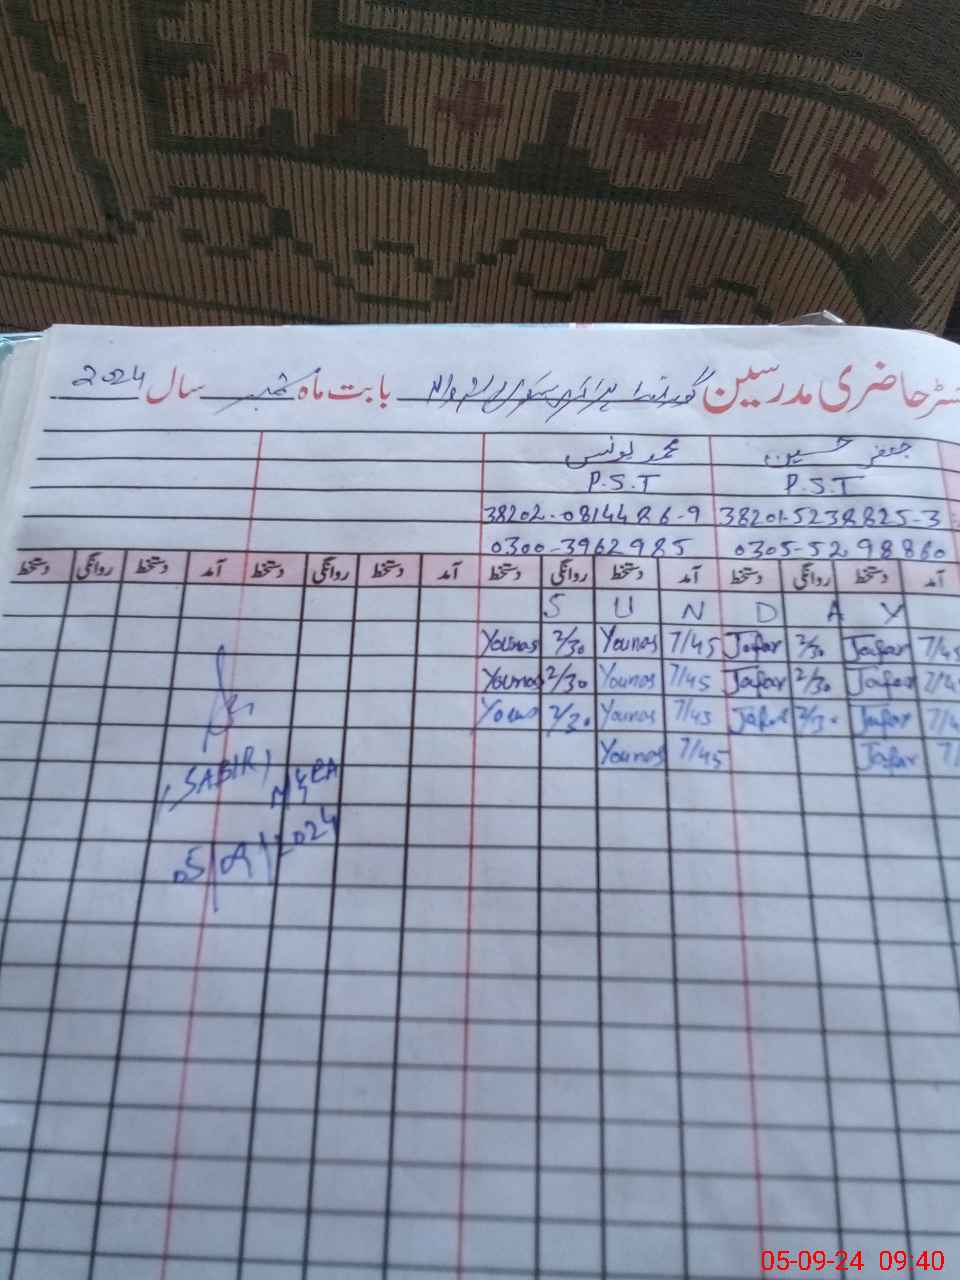 سٹر حاضری مدرسین گورنمنٹ پرائمری سکول بابت ماہ ستمبر سال 2024
جعفر حسین محمد یونس
P.S.T P.S.T
38202-0814486-9 38201-5238825-3
0300-3962985 0305-5298860
آمد دستخط روانگی دستخط آمد دستخط روانگی دستخط آمد دستخط روانگی دستخط آمد دستخط روانگی دستخط
S U N D A Y
Younas 2/30 Younas 7/45 Jafar 2/30 Jafar 7/45
Younas 2/30 Younas 7/45 Jafar 2/30 Jafar 7/45
Youns 2/30 Younas 7/45 Jafar 2/30 Jafar 7/4
Younas 7/45 Jafar 7/
(SABIR)
05/09/2024
05-09-24 09:40